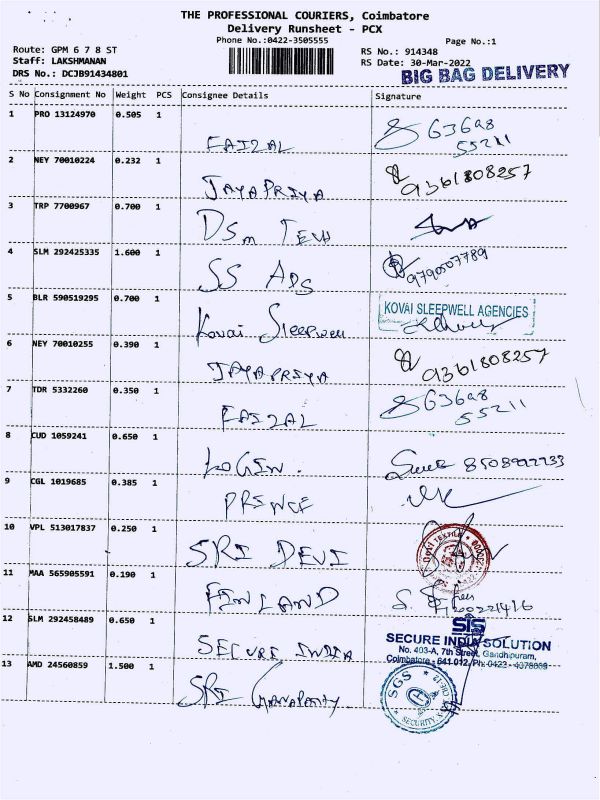 THE PROFESSIONAL COURIERS, Coimbatore
Delivery Runsheet - PCX
Phone No.:0422-3505555
Page No.:1
Route: GPM 6 7 8 ST
RS No.: 914348
Staff: LAKSHMANAN
RS Date: 30-Mar-2022
DRS No.: DCJB91434801
BIG BAG DELIVERY
S No Consignment No Weight PCS Consignee Details Signature
1 PRO 13124970 0.505 1
FAIZAL 63698
55211
2 NEY 70010224 0.232 1
JAYAPRIYA 9361808257
3 TRP 7700967 0.700 1
DSm TEX
4 SLM 292425335 1.600 1
SS ADS 9790507789
5 BLR 590519295 0.700 1
Kovai Sleepwell KOVAI SLEEPWELL AGENCIES
6 NEY 70010255 0.390 1
JAYAPRIYA 9361808257
7 TDR 5332260 0.350 1
FAIZAL 63698
55211
8 CUD 1059241 0.650 1
LOGIN.
9 CGL 1019685 0.385 1
PRINCE
10 VPL 513017837 0.250 1
SRI DEVI
11 MAA 565905591 0.190 1
FINLAND
12 SLM 292458489 0.650 1
SIS
SECURE INDIA SECURE INDIA SOLUTION
No. 403-A, 7th Street, Gandhipuram,
Coimbatore - 641 012. Ph: 0422 - 4378039
13 AMD 24560859 1.500 1
SRI GANAPATHY SGS
SECURITY